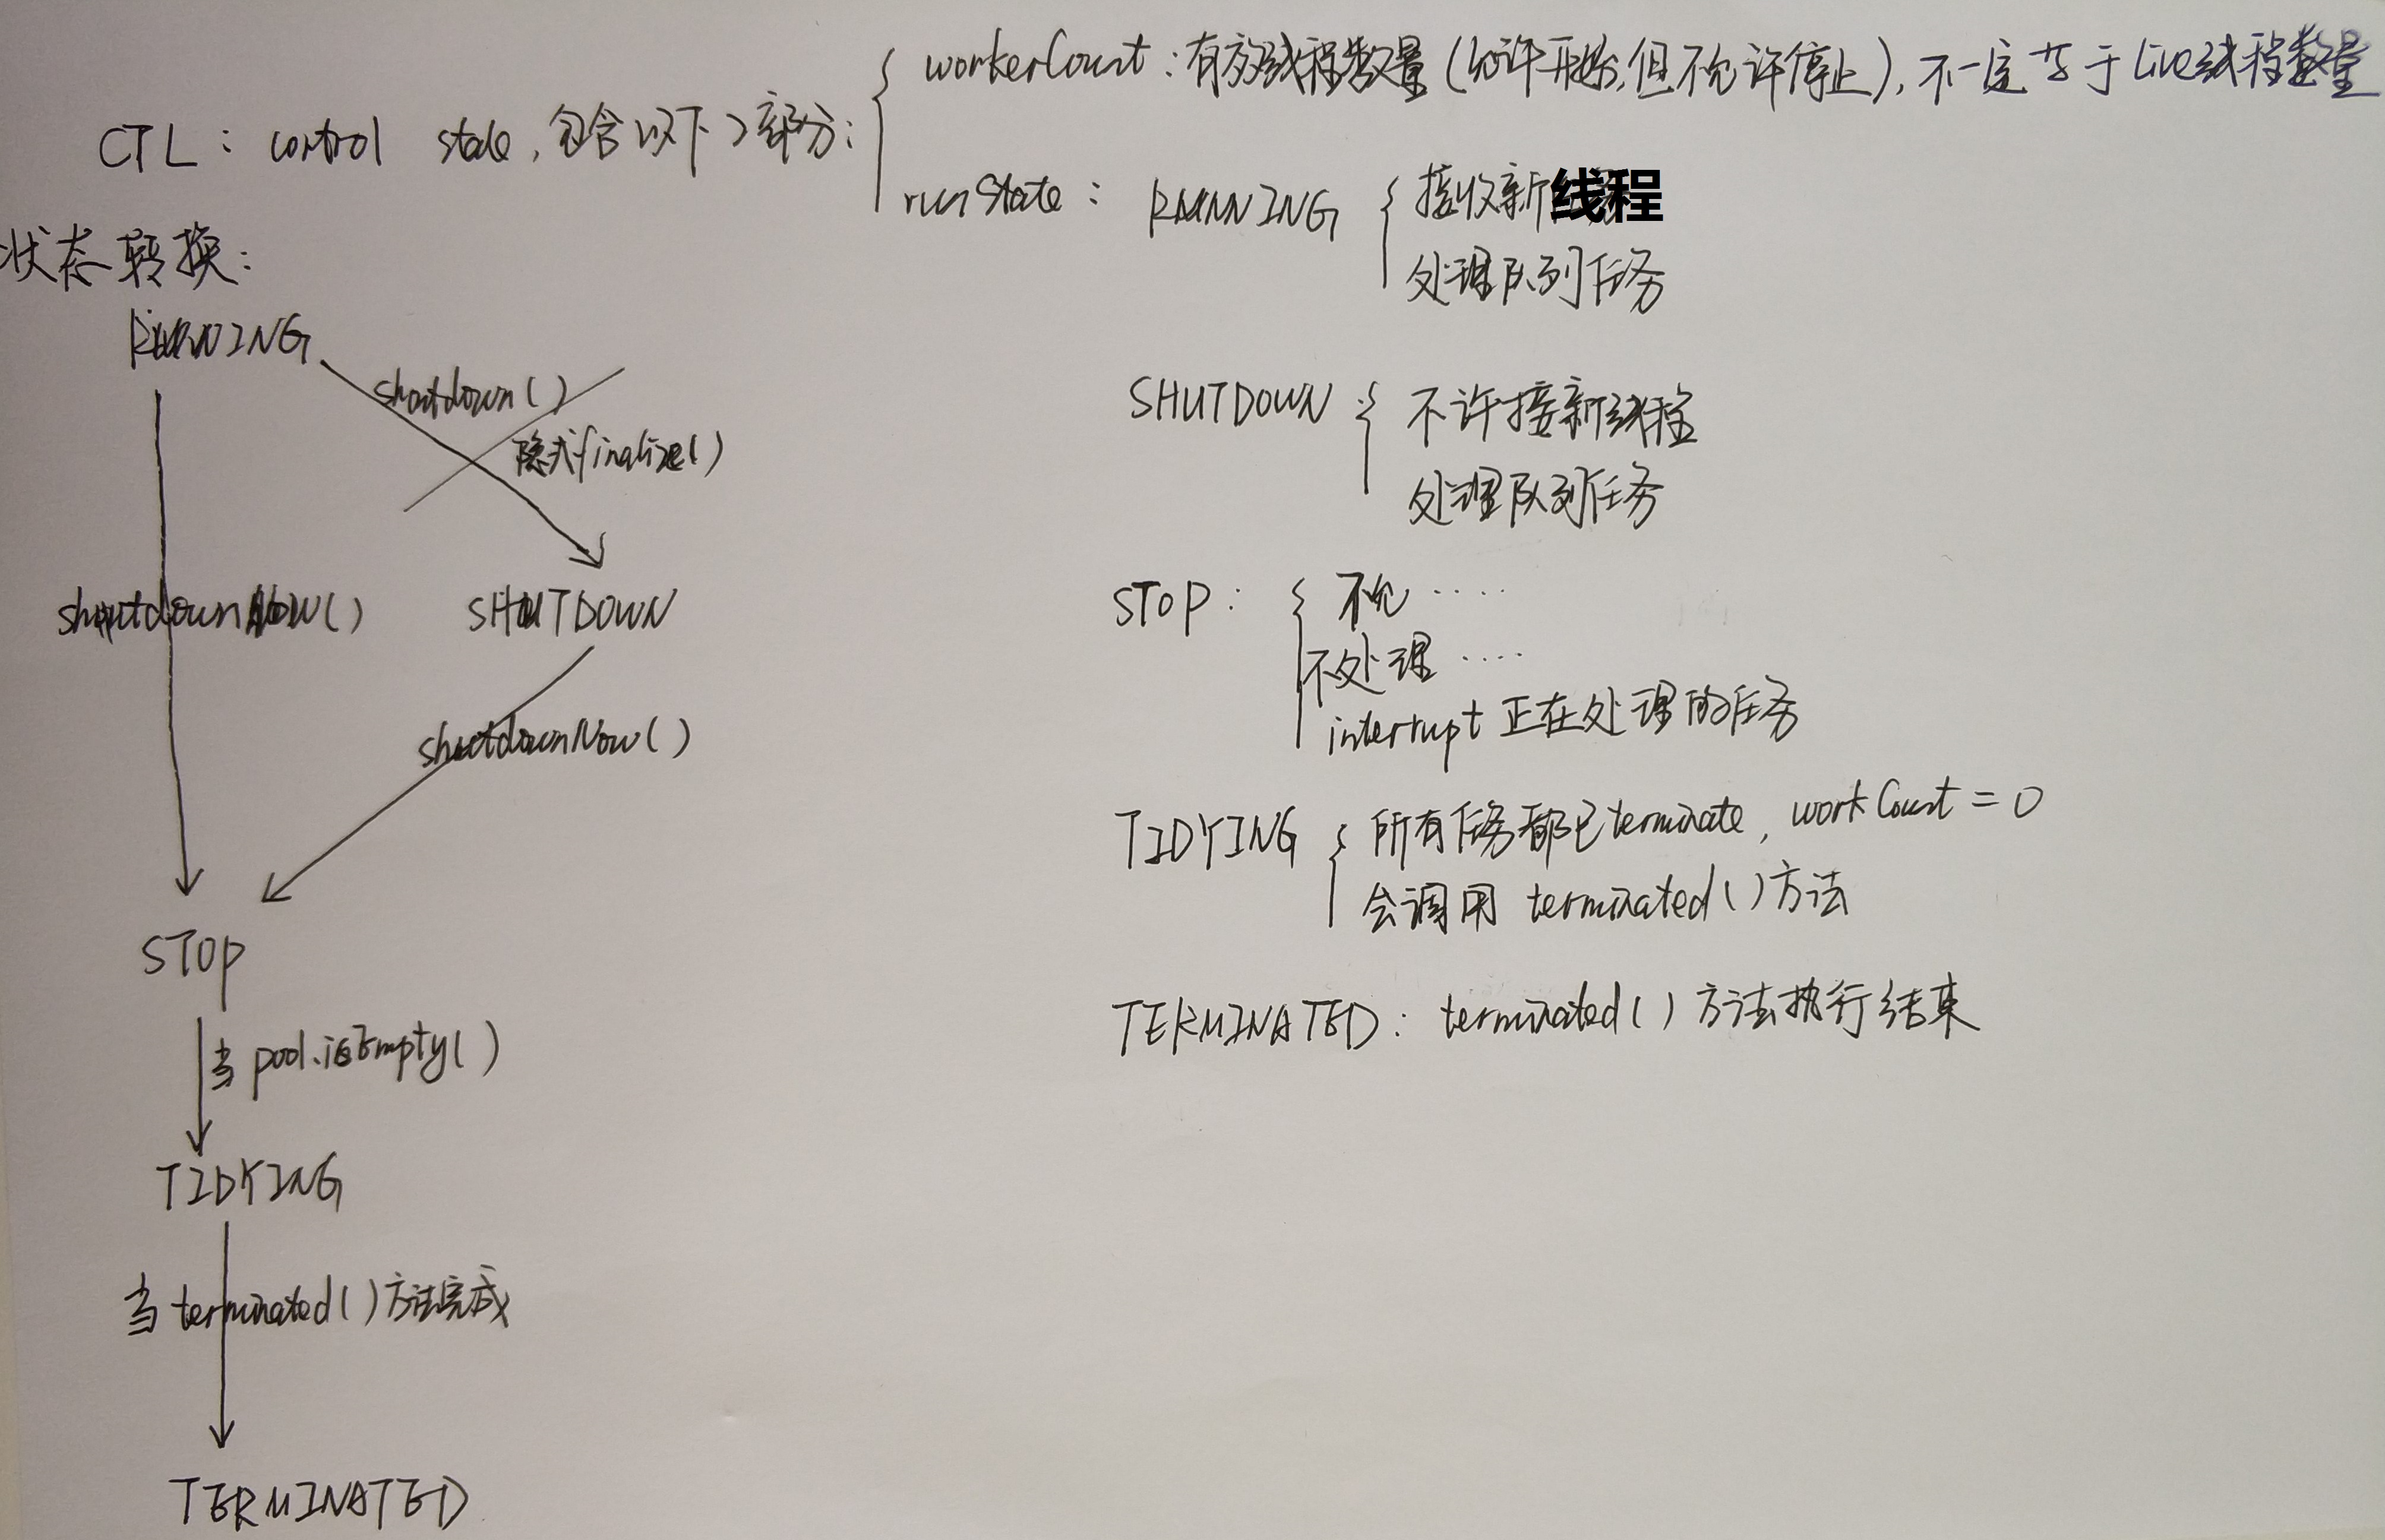 CTL: control state, 包含以下2部分:
workerCount: 有效线程数量(允许开始,但不允许停止),不一定等于Live线程数量
runState: RUNNING
接收新线程
处理队列任务
SHUTDOWN:
不许接新线程
处理队列任务
STOP:
不允....
不处理....
interrupt正在处理的任务
TIDYING
所有任务都已terminate, workCount = 0
会调用 terminated()方法
TERMINATED: terminated()方法执行结束
状态转换:
RUNNING
shutdown()
隐式finalize()
shutdownNow()
SHUTDOWN
shutdownNow()
STOP
当pool.isEmpty()
TIDYING
当terminated()方法完成
TERMINATED